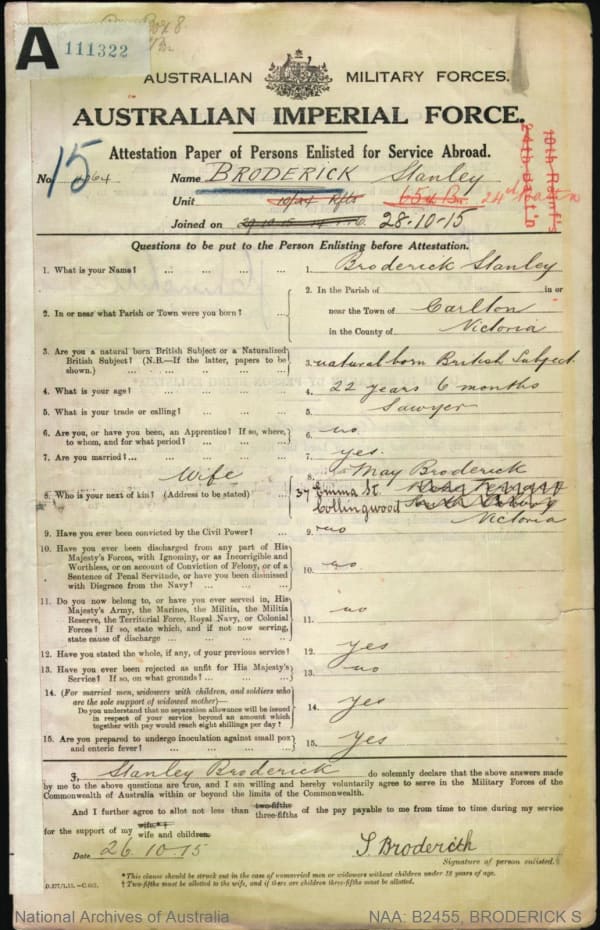 A 111322
AUSTRALIAN MILITARY FORCES.
AUSTRALIAN IMPERIAL FORCE.
Attestation Paper of Persons Enlisted for Service Abroad.
No. 15 4064 Name BRODERICK Stanley
Unit 10/24 Rfts 65th Bn. 24th Battn
10th Reinf'ts
24th Batt'n
Joined on 28-10-15
Questions to be put to the Person Enlisting before Attestation.
1. What is your Name? ... ... ... ... 1. Broderick Stanley
2. In or near what Parish or Town were you born? ... 2. In the Parish of in or
near the Town of Carlton
in the County of Victoria
3. Are you a natural born British Subject or a Naturalized
British Subject? (N.B.—If the latter, papers to be
shown.) ... ... ... ... 3. natural born British Subject
4. What is your age? ... ... ... ... 4. 22 years 6 months
5. What is your trade or calling? ... ... ... 5. Sawyer
6. Are you, or have you been, an Apprentice? If so, where,
to whom, and for what period? ... ... ... 6. no
7. Are you married? ... ... ... ... 7. yes.
Wife
8. Who is your next of kin? (Address to be stated) ... 8. May Broderick
37 Emma St.
Collingwood
Victoria
9. Have you ever been convicted by the Civil Power? ... 9. no
10. Have you ever been discharged from any part of His
Majesty's Forces, with Ignominy, or as Incorrigible and
Worthless, or on account of Conviction of Felony, or of a
Sentence of Penal Servitude, or have you been dismissed
with Disgrace from the Navy? ... ... ... 10. no
11. Do you now belong to, or have you ever served in, His
Majesty's Army, the Marines, the Militia, the Militia
Reserve, the Territorial Force, Royal Navy, or Colonial
Forces? If so, state which, and if not now serving,
state cause of discharge ... ... ... 11. no
12. Have you stated the whole, if any, of your previous service? 12. yes
13. Have you ever been rejected as unfit for His Majesty's
Service? If so, on what grounds? ... ... ... 13. no
14. (For married men, widowers with children, and soldiers who
are the sole support of widowed mother)—
Do you understand that no separation allowance will be issued
in respect of your service beyond an amount which
together with pay would reach eight shillings per day? 14. yes
15. Are you prepared to undergo inoculation against small pox
and enteric fever? ... ... ... ... 15. Yes
I, Stanley Broderick do solemnly declare that the above answers made
by me to the above questions are true, and I am willing and hereby voluntarily agree to serve in the Military Forces of the
Commonwealth of Australia within or beyond the limits of the Commonwealth.
And I further agree to allot not less than two-fifths three-fifths of the pay payable to me from time to time during my service
for the support of my wife.*† wife and children.
Date 26.10.15 S. Broderick
Signature of person enlisted.
*This clause should be struck out in the case of unmarried men or widowers without children under 18 years of age.
† Two-fifths must be allotted to the wife, and if there are children three-fifths must be allotted.
National Archives of Australia NAA: B2455, BRODERICK S